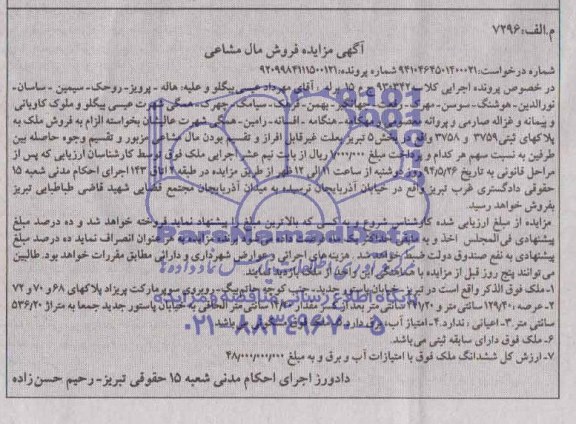 م.الف:۷۲۹۶
آگهی مزایده فروش مال مشاعی
شماره درخواست:۹۴۱۰۴۶۴۵۰۱۲۰۰۰۲۱ شماره پرونده:۹۲۰۹۹۸۴۱۱۱۵۰۰۱۲۱
در خصوص پرونده اجرایی کلاسه ۹۳۰۳۴۲ ح م ۱۵ له: آقای مهرداد عیسی بیگلو و علیه: هاله - پرویز - روحک - سیمین - ساسان -
نورالدین - هوشنگ - سوسن - مهرک - جهانگیر - بهمن - سیامک - چهرک - همگی شهرت عیسی بیگلو و ملوک کاویانی
و پیمانه و غزاله صارمی و پروانه هنگامه - افسانه - رامین - همگی شهرت عالشان بخواسته الزام به فروش ملک به
پلاکهای ثبتی۳۷۵۹ و ۳۷۵۸ واقع در بخش۵ تبریز بعلت غیرقابل افراز و تقسیم بودن مال مشاعی مزبور و تقسیم وجوه حاصله بین
طرفین به نسبت سهم هر کدام و پرداخت مبلغ ریال از بابت نیم عشر اجرایی ملک فوق توسط کارشناسان ارزیابی که پس از
مراحل قانونی به تاریخ ۹۴/۵/۲۶ روز دوشنبه از ساعت ۱۱الی ۱۲ظهر از طریق مزایده در طبقه۲ اتاق ۱۴۳ اجرای احکام مدنی شعبه ۱۵
حقوقی دادگستری غرب تبریز واقع در خیابان آذربایجان نرسیده به میدان آذربایجان مجتمع قضایی شهید قاضی طباطبایی تبریز
بفروش خواهد رسید.
مزایده از مبلغ ارزیابی شده کارشناسی شروع و به کسی که بالاترین مبلغ را پیشنهاد نماید فروخته خواهد شد و ده درصد مبلغ
پیشنهادی فی‌المجلس اخذ و به مابقی برنده مزایده به هر عنوان انصراف نماید ده درصد مبلغ
پیشنهادی به نفع صندوق دولت ضبط خواهد شد. هزینه‌های اجرائی و عوارض شهرداری و دارائی مطابق مقررات خواهد بود. طالبین
می توانند پنج روز قبل از مزایده با هماهنگی این واحد از ملک بازدید نمایند.
۱- ملک فوق الذکر واقع است در تبریز-خیابان پاستور جدید- جنب کوچه - روبروی سوپرمارکت پریزاد پلاکهای ۶۸ و ۷۰ و ۷۲
۲- عرصه ،۱۲۹/۴۰ سانتی متر و سانتی متر بعد از مقدار سانتی متر الحاقی به خیابان پاستور جدید جمعا به متراژ ۵۳۶/۲۰
سانتی متر ۳- اعیانی : ندارد. ۴- امتیاز آب و برق دارد.
۶- ملک فوق دارای سابقه ثبتی می‌باشد.
۷- ارزش کل ششدانگ ملک فوق با امتیازات آب و برق و به مبلغ ۴۸/۰۰۰/۰۰۰/۰۰۰
دادورز اجرای احکام مدنی شعبه ۱۵ حقوقی تبریز- رحیم حسن زاده
ParsNamadData
پایگاه اطلاع رسانی مناقصه و مزایده
۰۲۱-۸۸۳۴۹۶۷۰-۵